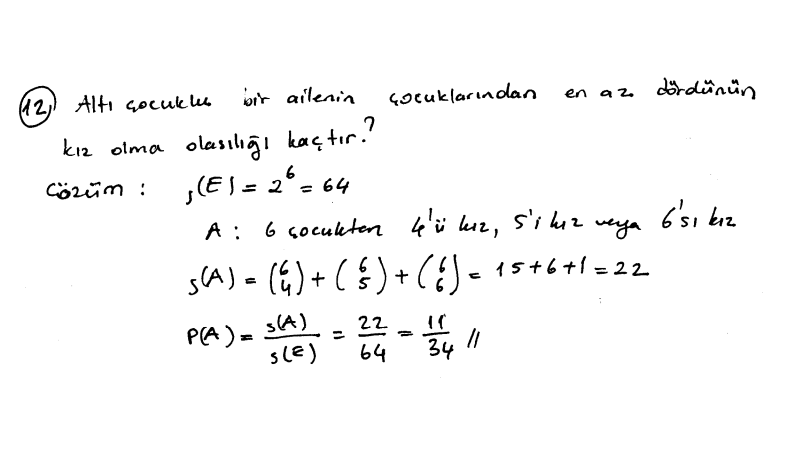 12) Altı çocuklu bir ailenin çocuklarından en az dördünün
kız olma olasılığı kaçtır?
Çözüm : s(E) = 2^6 = 64
A : 6 çocuktan 4'ü kız, 5'i kız veya 6'sı kız
s(A) = (6 4) + (6 5) + (6 6) = 15+6+1 = 22
P(A) = s(A)/s(E) = 22/64 = 11/34 //